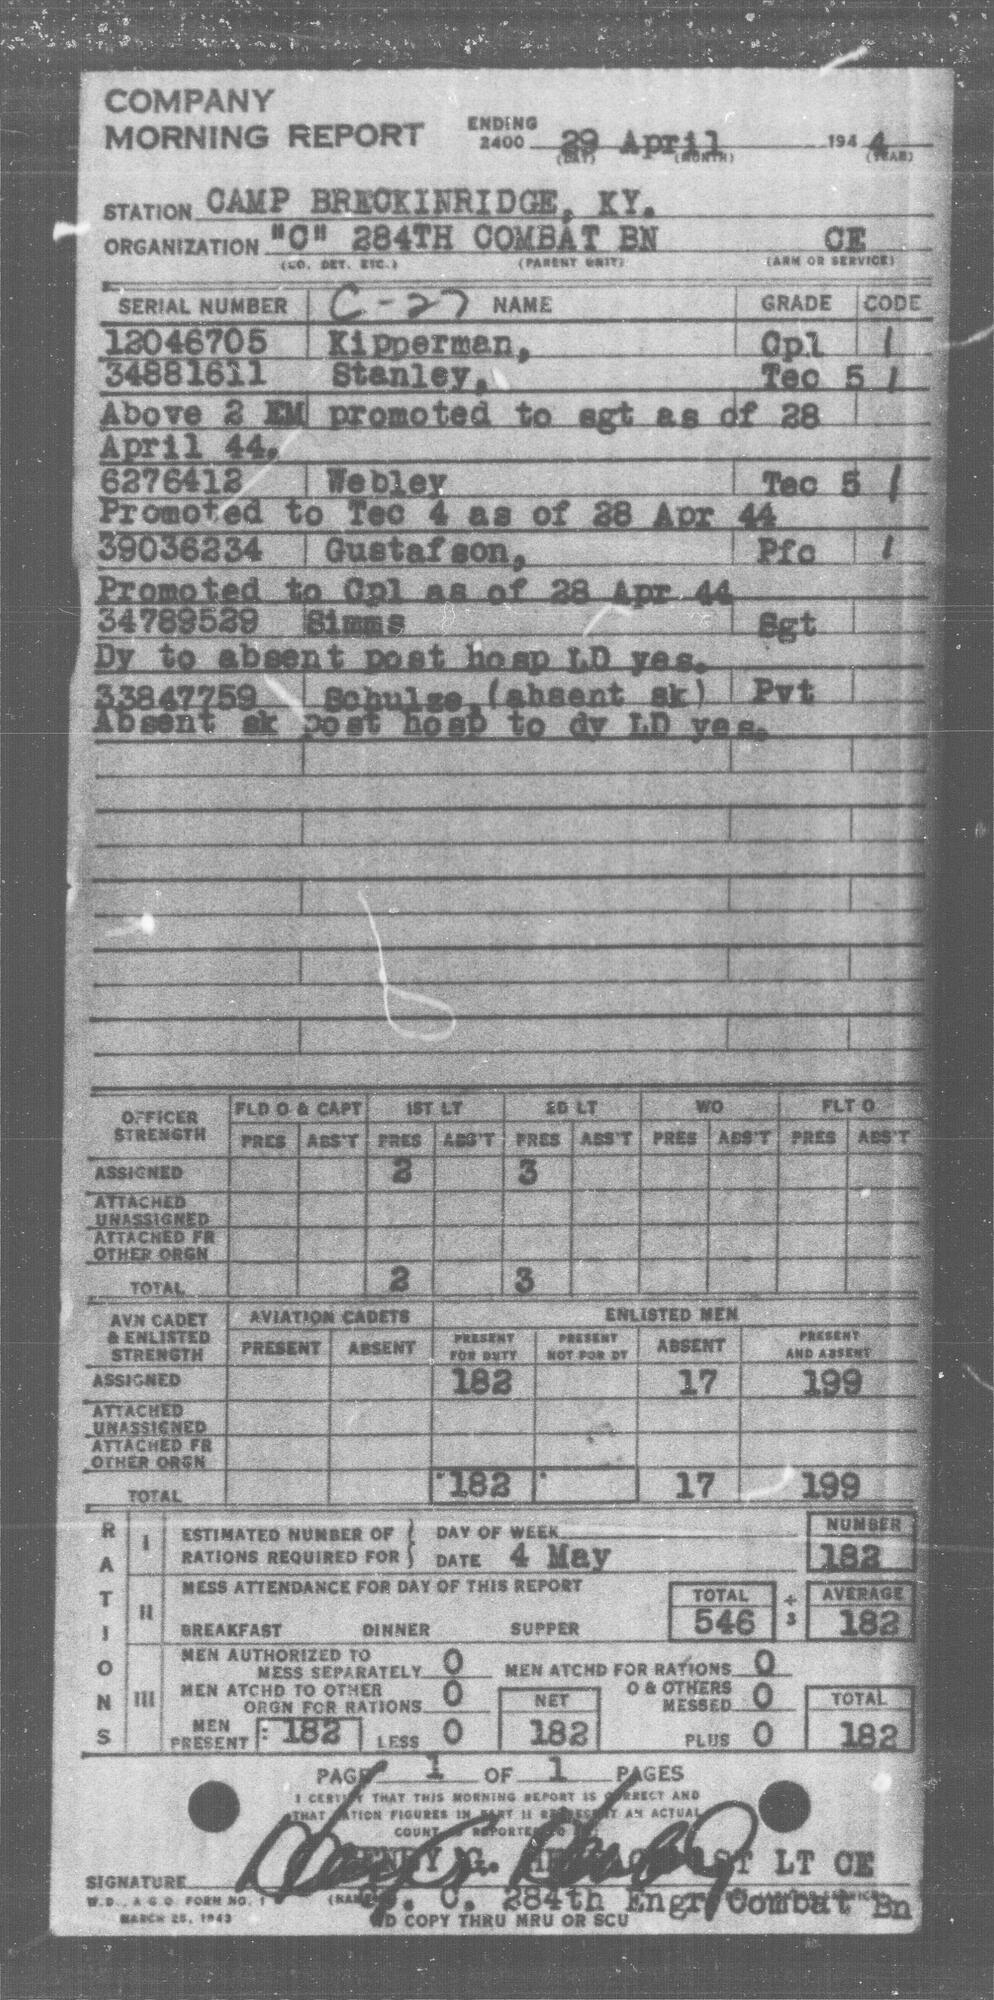 COMPANY
MORNING REPORT ENDING 2400 29 April 1944
(DAY) (MONTH) (YEAR)
STATION CAMP BRECKINRIDGE, KY.
ORGANIZATION "C" 284TH COMBAT BN CE
(CO. DET. ETC.) (PARENT UNIT) (ARM OR SERVICE)
SERIAL NUMBER C-27 NAME GRADE CODE
12046705 Kipperman, Cpl 1
34881611 Stanley, Tec 5 1
Above 2 EM promoted to sgt as of 28
April 44.
6276412 Webley Tec 5 1
Promoted to Tec 4 as of 28 Apr 44
39036234 Gustafson, Pfc 1
Promoted to Cpl as of 28 Apr 44
34789529 Simms Sgt
Dy to absent post hosp LD yes.
33847759 Schulze,(absent sk) Pvt
Absent sk post hosp to dy LD yes.
OFFICER STRENGTH FLD O & CAPT 1ST LT 2D LT WO FLT O
PRES ABS'T PRES ABS'T PRES ABS'T PRES ABS'T PRES ABS'T
ASSIGNED 2 3
ATTACHED UNASSIGNED
ATTACHED FR OTHER ORGN
TOTAL 2 3
AVN CADET & ENLISTED STRENGTH AVIATION CADETS ENLISTED MEN
PRESENT ABSENT PRESENT FOR DUTY PRESENT NOT FOR DY ABSENT PRESENT AND ABSENT
ASSIGNED 182 17 199
ATTACHED UNASSIGNED
ATTACHED FR OTHER ORGN
TOTAL 182 17 199
RATIONS
I ESTIMATED NUMBER OF RATIONS REQUIRED FOR DAY OF WEEK NUMBER
DATE 4 May 182
II MESS ATTENDANCE FOR DAY OF THIS REPORT TOTAL ÷ 3 AVERAGE
BREAKFAST DINNER SUPPER 546 182
III MEN AUTHORIZED TO MESS SEPARATELY 0 MEN ATCHD FOR RATIONS 0
MEN ATCHD TO OTHER ORGN FOR RATIONS 0 NET O & OTHERS MESSED 0 TOTAL
MEN PRESENT 182 LESS 0 182 PLUS 0 182
PAGE 1 OF 1 PAGES
I CERTIFY THAT THIS MORNING REPORT IS CORRECT AND
THAT RATION FIGURES IN PART II REPRESENT AN ACTUAL
COUNT REPORTED TO
HENRY G. 1ST LT CE
SIGNATURE
W.D., A.G.O. FORM NO. 1 C. 284th Engr Combat Bn
MARCH 25, 1943 WD COPY THRU MRU OR SCU